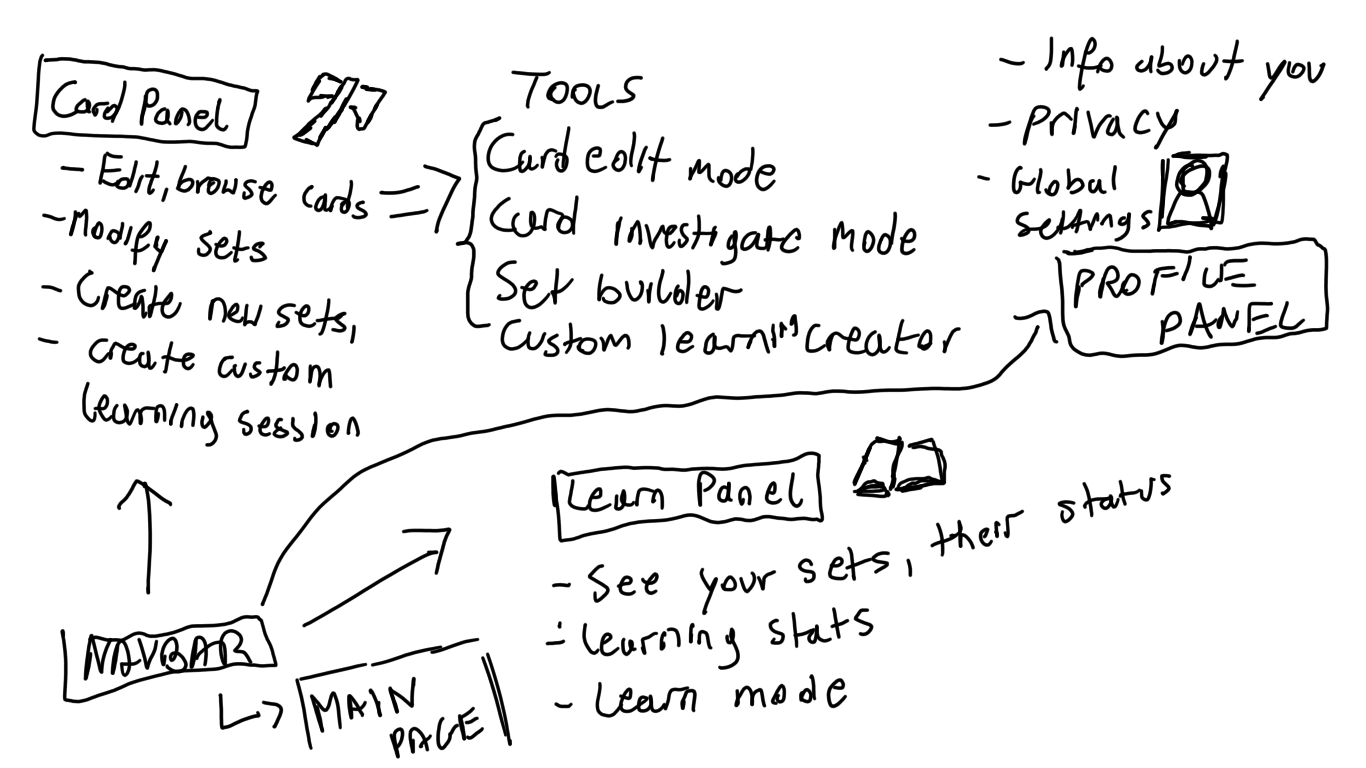 Card Panel
- Edit, browse cards
- Modify sets
- Create new sets,
- create custom
learning session
TOOLS
Card edit mode
Card investigate mode
Set builder
Custom learning creator
- Info about you
- Privacy
- Global
settings
PROFILE
PANEL
Learn Panel
- See your sets, their status
- learning stats
- Learn mode
NAVBAR
MAIN
PAGE